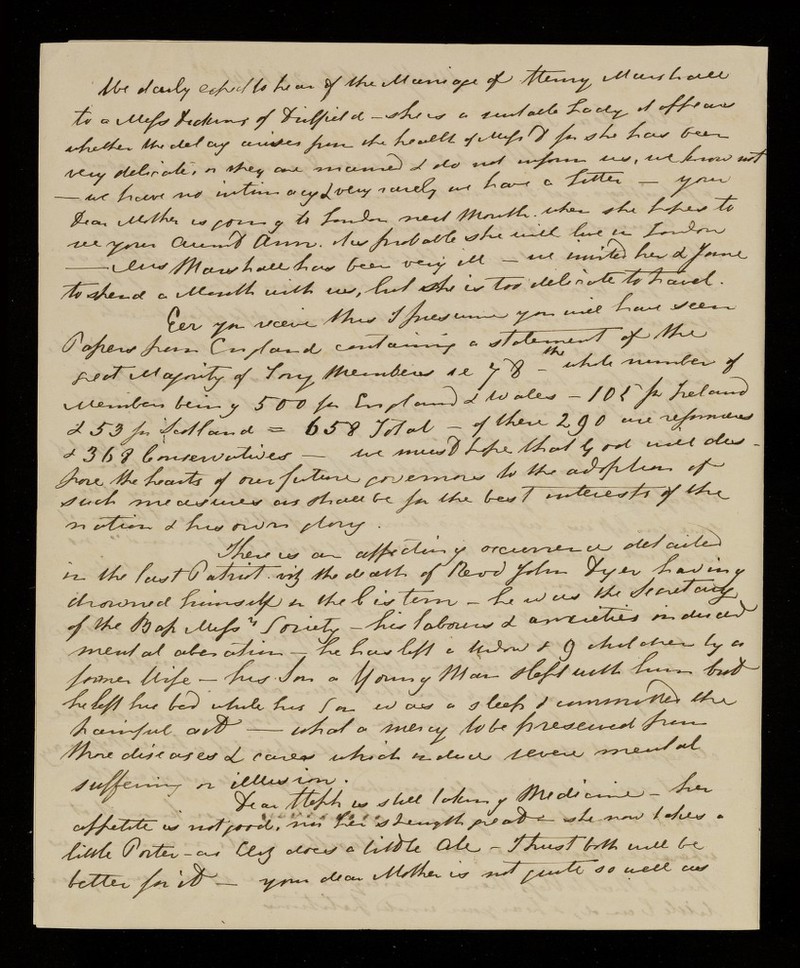 We daily expect to hear of the Marriage of Henry Marshall
to a Miss Dickins of Duffield - she is a suitable Lady it appears
whether the delay arises from the health of Miss D for she has been
very delicate, or they are married & do not inform us, we know not
- we have no intimacy & very rarely we have a Letter - your
Dear Mother is going to London next Month when she hopes to
see your Aunt Ann. tis probable she will live in London
- Mrs Marshall has been very ill - we invited her & Jane
to spend a Month with us, but she is too delicate to travel.
Eer you receive this I presume you will have seen
Papers from England containing a statement of the
great Majority of Tory Members ie 78 - the whole number of
Members being 500 for England & Wales - 105 for Ireland
& 53 for Scotland = 658 Total - of these 290 are reformers
& 368 Conservatives - we must hope that God will dis-
pose the hearts of our future governors to the adoption of
such measures as shall be for the best interests of the
nation & his own glory.
There is an affecting occurrence detailed
in the last Patriot. viz the death of Revd John Dyer having
drowned himself in the Cistern - he was the Secretary
of the Bap Missy Society - his labours & anxieties induced
mental aberation - he has left a Widow & 9 children by a
former Wife - his Son a Young Man slept with him but
he left his bed while his Son was a sleep & committed the
painful act - what a mercy to be preserved from
those diseases & cares which induce severe mental
suffering or illusion.
Dear Steph is still taking Medicine - her
appetite is not good, nor her strength great - she now takes a
little Porter - as Eliz does a little Ale - I trust both will be
better for it - your dear Mother is not quite so well as